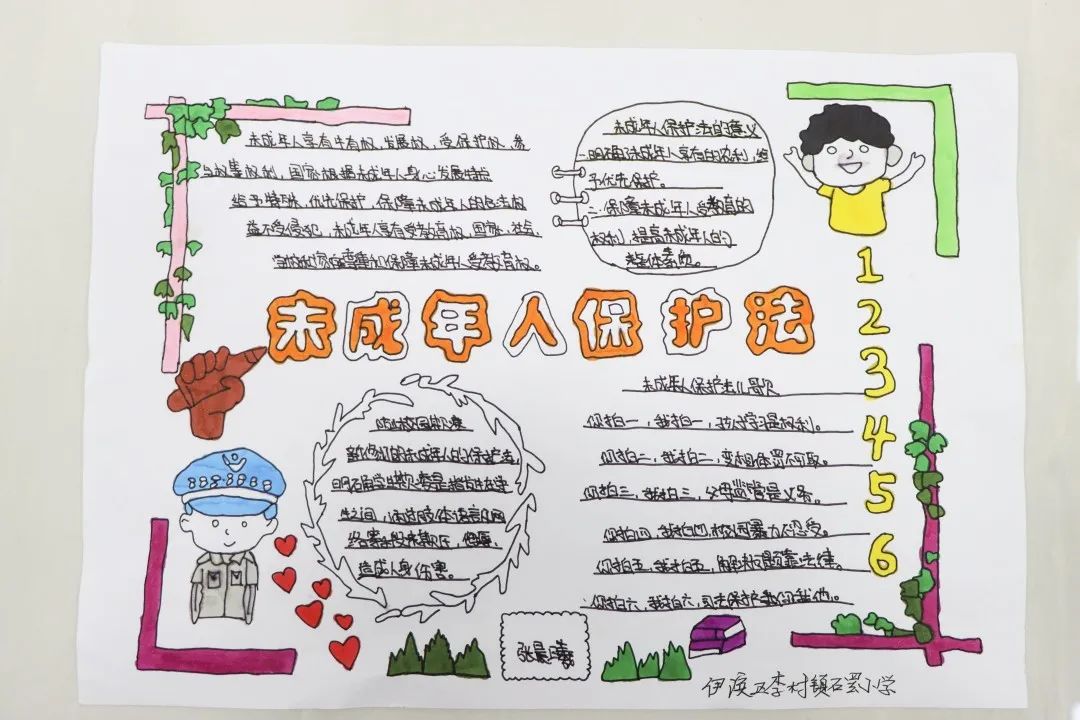 未成年人享有生存权、发展权、受保护权、参
与权等权利，国家根据未成年人身心发展特点
给予特殊、优先保护，保障未成年人的合法权
益不受侵犯，未成年人享有受教育权，国家、社会、
学校和家庭尊重和保障未成年人受教育权。
未成年人保护法的意义
一、明确了未成年人享有的权利，给
予优先保护。
二、保障未成年人受教育的
权利，提高未成年人的
整体素质。
未成年人保护法
1
2
3
4
5
6
校园欺凌
新修订的未成年人的保护法，
明确学生欺凌是指发生在学
生之间，通过肢体语言及网
络等手段
造成人身伤害。
未成年人保护法儿歌
你拍一，我拍一，孩子学习是权利。
你拍二，我拍二，变相体罚不可取。
你拍三，我拍三，父母监管是义务。
你拍四，我拍四，校园暴力不忍受。
你拍五，我拍五，解决问题靠法律。
你拍六，我拍六，司法保护教你我他。
张晨曦
李村镇石罢小学